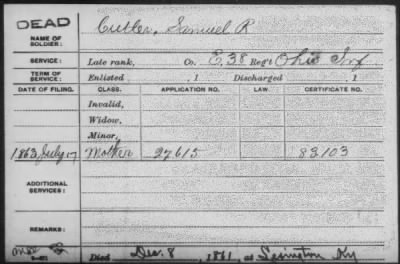 DEAD
NAME OF SOLDIER: Cutler, Samuel R
SERVICE: Late rank, Co. E, 38 Reg't Ohio Inf
TERM OF SERVICE: Enlisted , 1 Discharged , 1
DATE OF FILING. CLASS. APPLICATION NO. LAW. CERTIFICATE NO.
Invalid,
Widow,
Minor,
1863 July 17 Mother 27615 83103
ADDITIONAL SERVICES:
REMARKS:
Died Dec. 8, 1861, at Lexington Ky